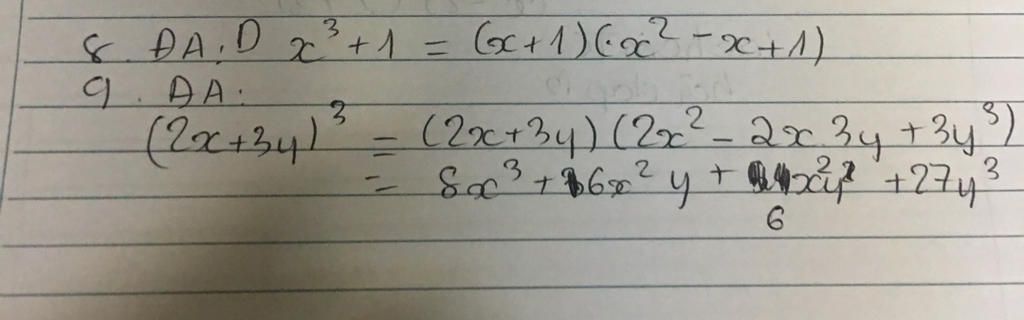 8. ĐA: D x³ + 1 = (x+1)(x² - x + 1)
9. ĐA:
(2x+3y)³ = (2x+3y)(2x² - 2x.3y + 3y³)
= 8x³ + 6x²y + x²y + 27y³
6